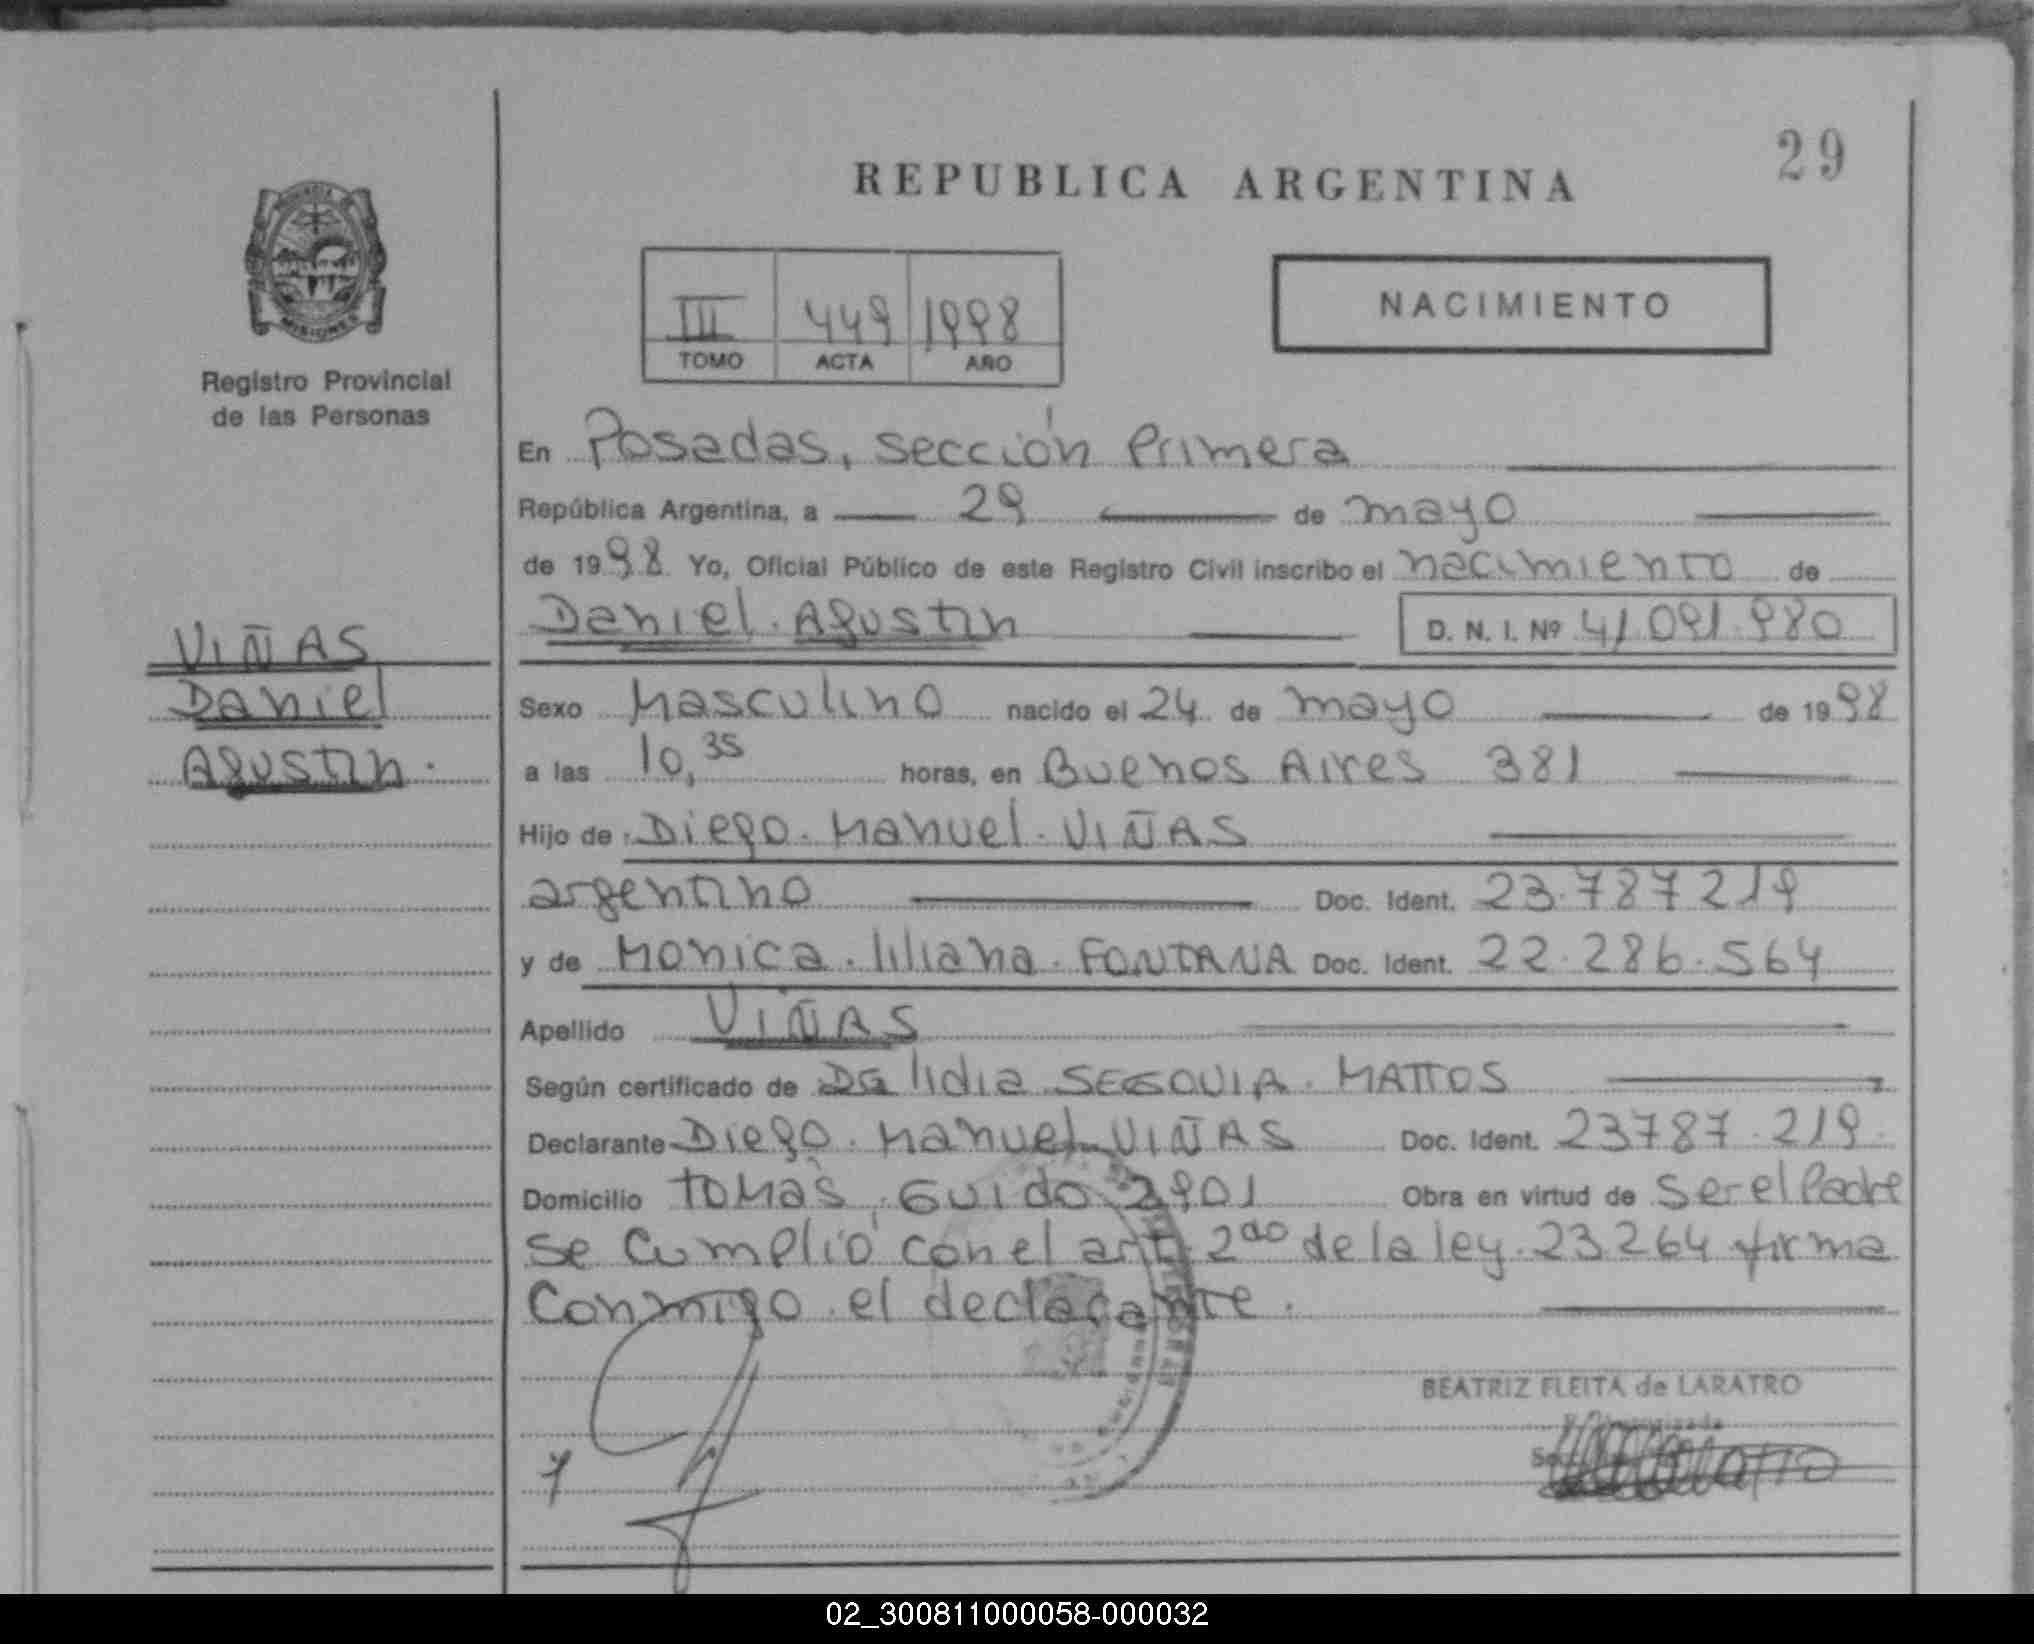 29
REPUBLICA ARGENTINA
MISIONES
Registro Provincial
de las Personas
III 449 1998
TOMO ACTA AÑO
NACIMIENTO
En Posadas, sección Primera
República Argentina, a 29 de mayo
de 1998 Yo, Oficial Público de este Registro Civil inscribo el nacimiento de
Daniel Agustin D. N. I. Nº 41.091.980
VIÑAS
Daniel
Agustin.
Sexo Masculino nacido el 24 de mayo de 1998
a las 10,35 horas, en Buenos Aires 381
Hijo de Diego Manuel VIÑAS
argentino Doc. Ident. 23.787219
y de Monica liliana FONTANA Doc. Ident. 22.286.564
Apellido VIÑAS
Según certificado de DG lidia SEGOVIA MATTOS
Declarante Diego Manuel VIÑAS Doc. Ident. 23787.219
Domicilio TOMAS GUIDO 2901 Obra en virtud de ser el Padre
se cumplió con el art 2do de la ley 23264 firma
conmigo el declarante.
BEATRIZ FLEITA de LARATRO
02_300811000058-000032